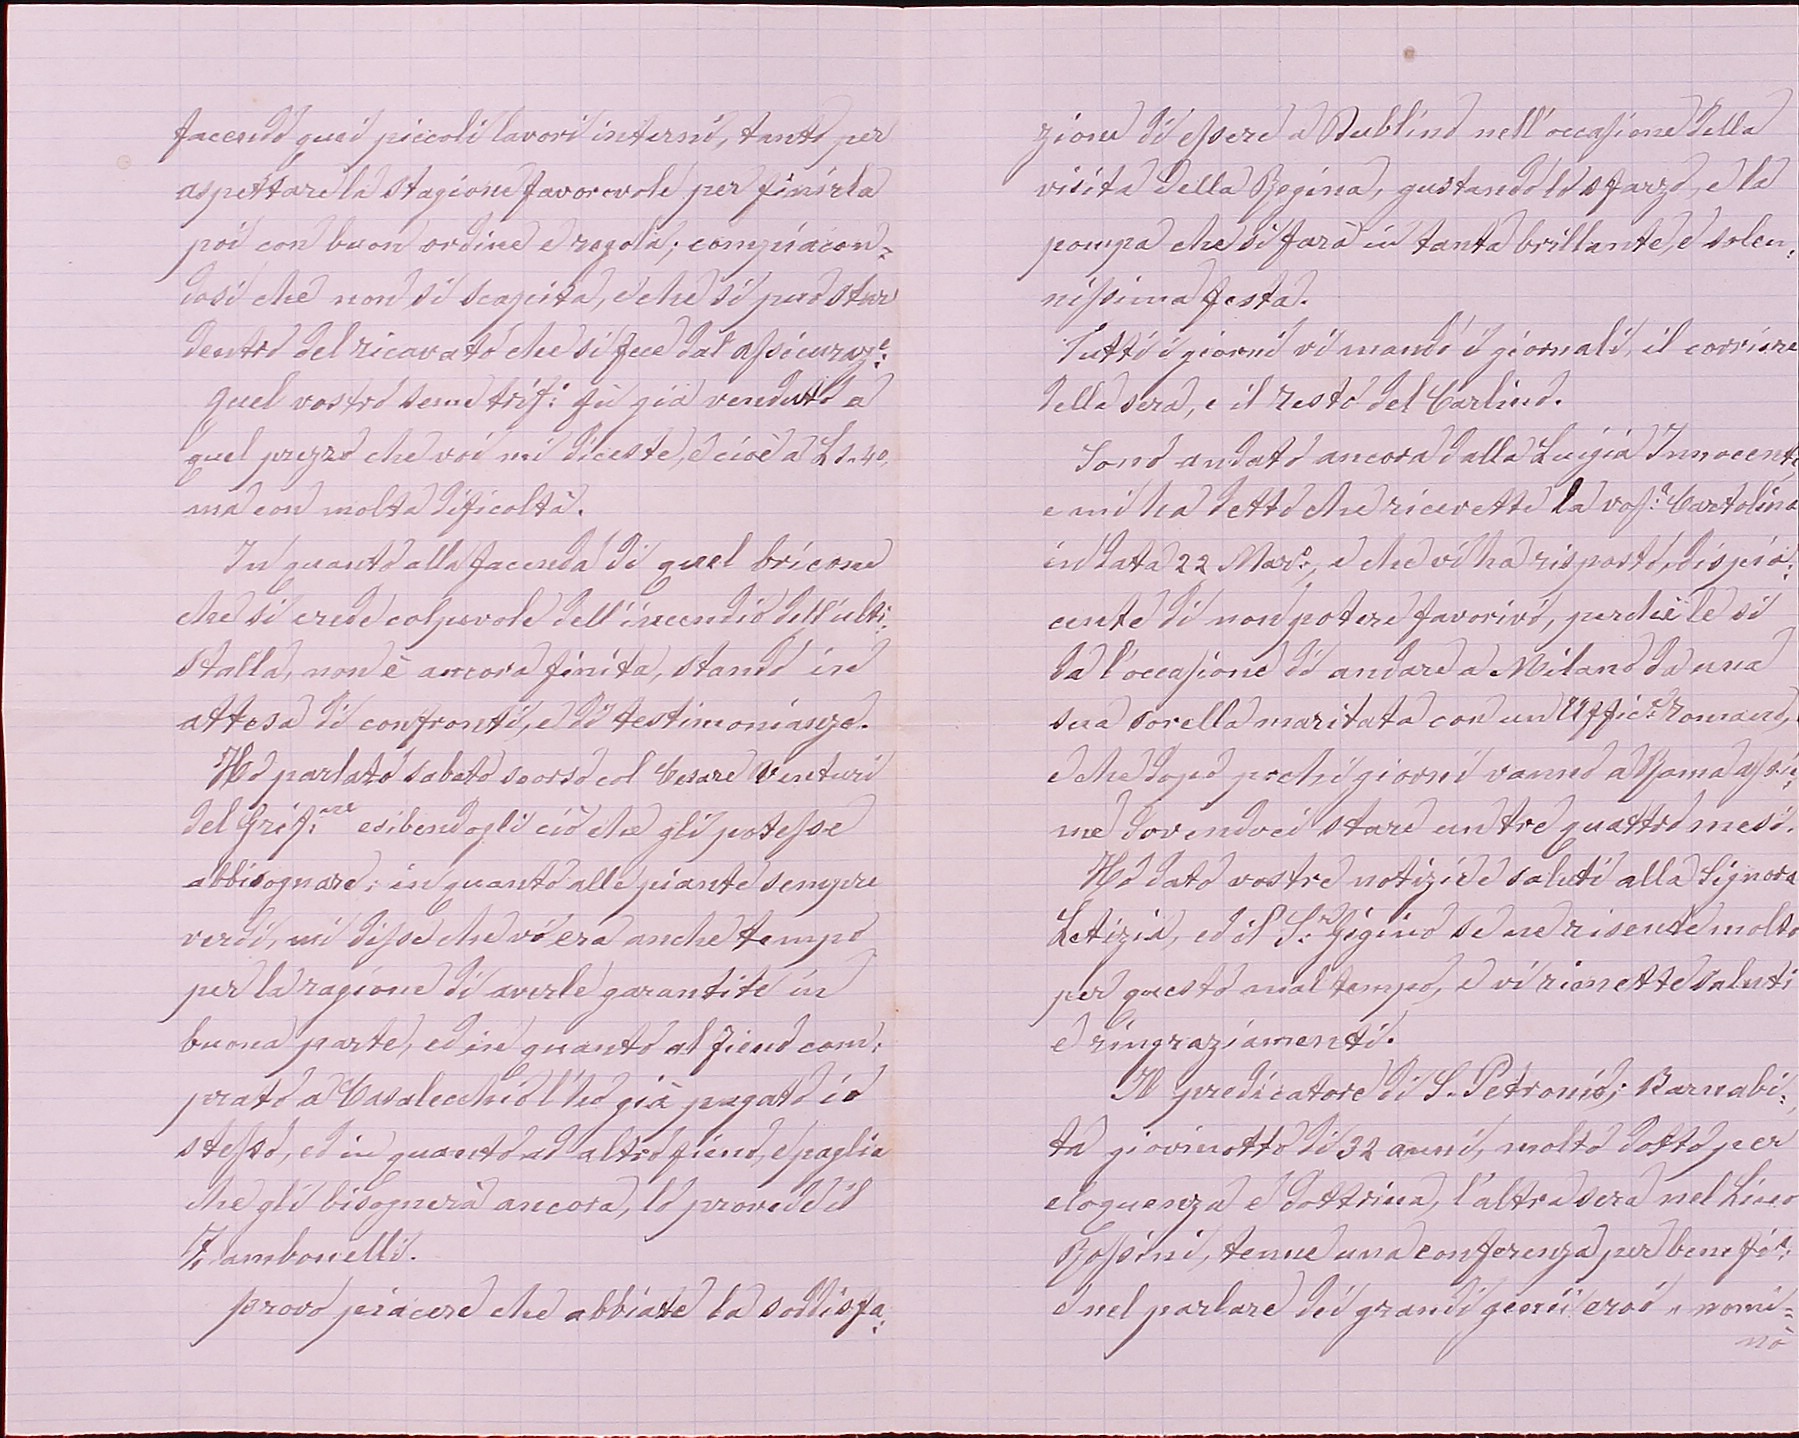 facendo quei piccoli lavori interni, tanto per
aspettare la stagione favorevole per finirla
poi con buon ordine e regola; compiacen=
dosi che non si scapita, e che si può star
dentro del ricavato che si fece dal assicuraz.e:
Quel vostro seme trif: fù già venduto a
quel prezzo che voi mi diceste, e cioè a L 1.40,
ma con molta dificoltà.
In quanto alla facenda di quel bricone
che si crede colpevole dell'incendio dell'ulti:
stalla, non è ancora finita, stando in
attesa di confronti, e di testimonianze.
Ho parlato sabato scorso col Cesare Venturi
del Grif:ne esibendogli ciò che gli potesse
abbisognare; in quanto alle piante sempre
verdi, mi disse che vi era anche tempo
per la ragione di averle garantite in
buona parte, ed in quanto al fieno com:
prato a Casalecchio l'ho già pagato io
stesso, ed in quanto ad altro fieno, e paglia
che gli bisognerà ancora, lo provede il
Tambonelli.
Provo piacere che abbiate la soddisfa:
zione di essere a Dublino nell'occasione della
visita della Regina, gustando lo sfarzo, e la
pompa che si farà in tanta brillante, e solen:
nissima festa.
Tutti i giorni vi mando i giornali, il corriere
della sera, e il resto del Carlino.
Sono andato ancora dalla Luigia Innocenti
e mi ha detto che ricevette la vos:a Cartolina
in data 22 Mar:o, e che vi ha risposto, dispia:
cente di non potere favorirvi, perchè le si
da l'occasione di andare a Milano da una
sua sorella maritata con un Uffic:e Romano,
e che dopo pochi giorni vanno a Roma assie:
me dovendoci stare un tre quattro mesi.
Ho dato vostre notizie e saluti alla Signora
Letizia, ed il S:r Gigino se ne risente molto
per questo mal tempo, e vi rimette saluti
e ringraziamenti.
Il predicatore di S. Petronio; Barnabi:
ta giovinotto di 32 anni, molto dotto per
eloquenza e dottrina, l'altra sera nel Liceo
Rossini, tenne una conferenza per benefi:
e nel parlare dei grandi genii eroi, nomi=
nò